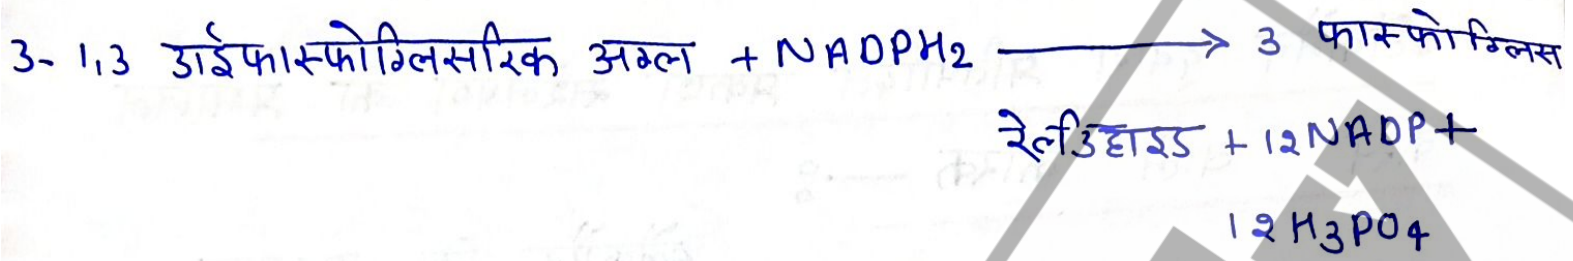 3- 1,3 डाईफास्फोग्लिसरिक अम्ल + NADPH2 ⟶ 3 फास्फोग्लिस
रेल्डिहाइड + 12NADP+
12H3PO4